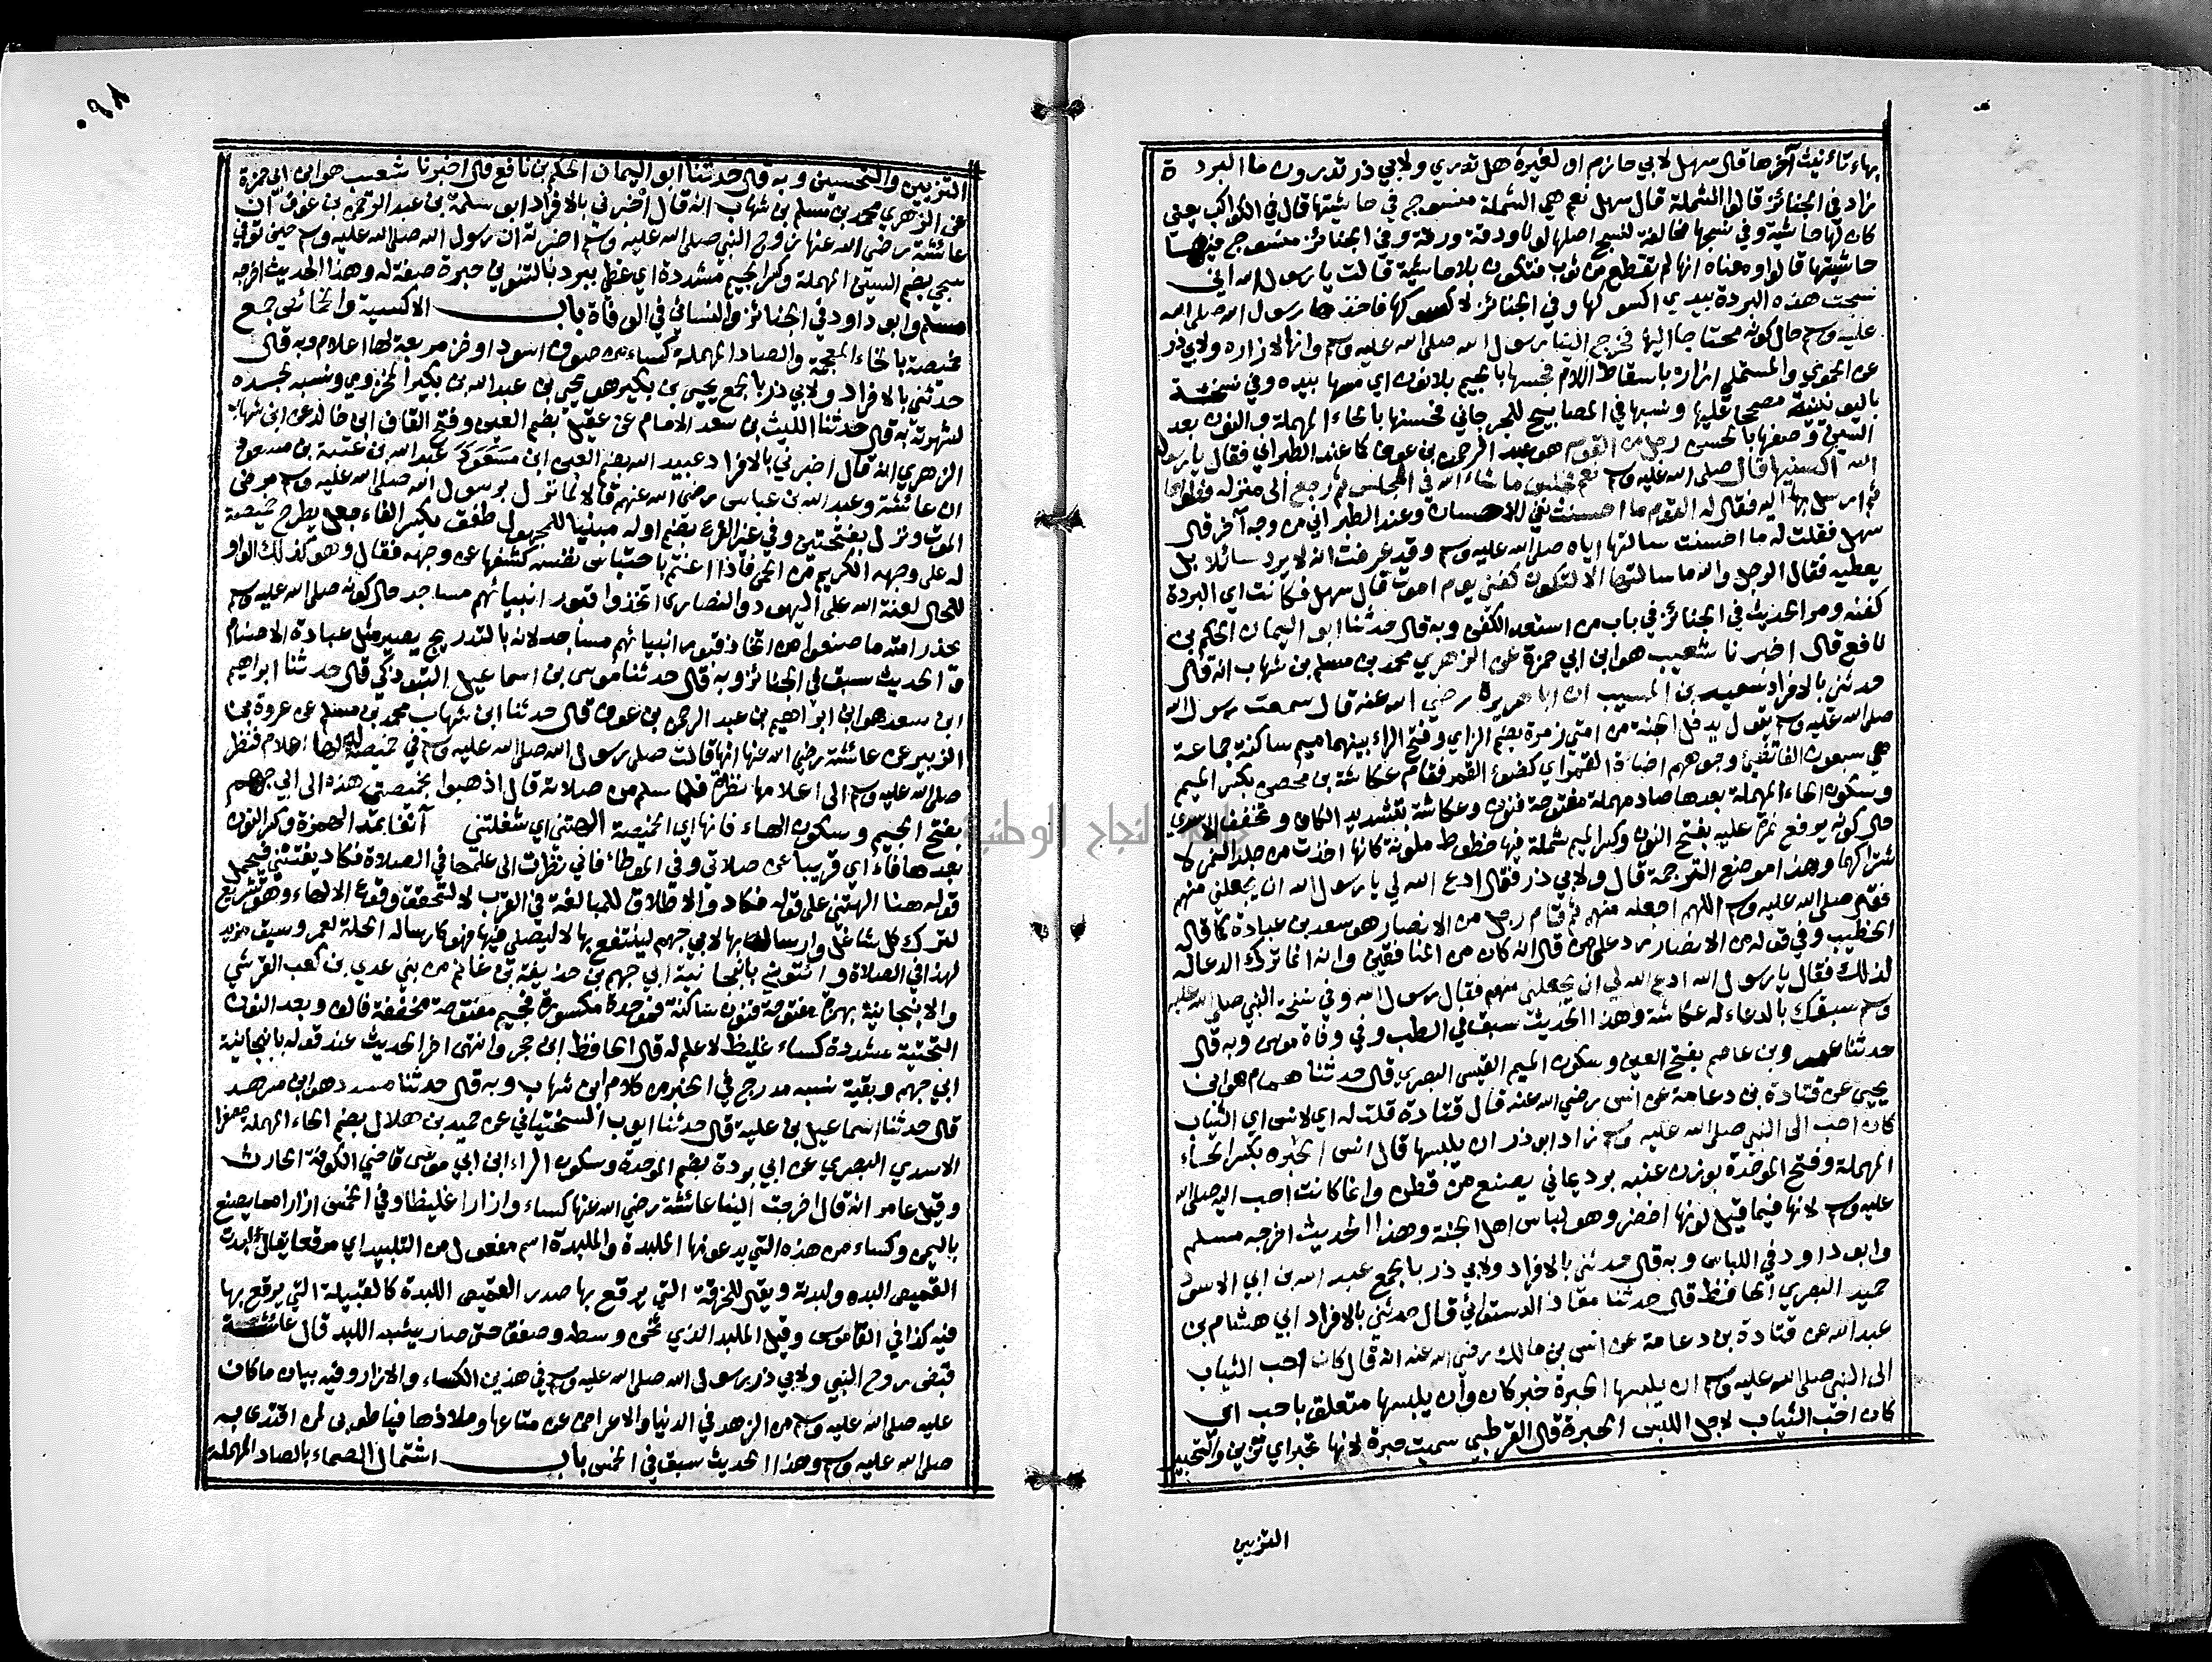 بهاء تأنيث آخرها قال سهل لابي حازم او لغيره هل تدري ولابي ذر تدرون ما البردة
زاد في الجنائز قالوا الشملة قال سهل نعم هي الشملة منسوج في حاشيتها قال في الكواكب يعني
كان لها حاشية وفي نسجها مخالفة لنسج اصلها لونا ودقة ورقة وفي الجنائز منسوج فيها
حاشيتها قالوا ومعناه انها لم تقطع من ثوب فتكون بلا حاشية قالت يا رسول الله اني
نسجت هذه البردة بيدي اكسوكها وفي الجنائز لاكسوكها فاخذها رسول الله صلى الله
عليه وسلم حال كونه محتاجا اليها فخرج الينا رسول الله صلى الله عليه وسلم وانها لازاره ولابي ذر
عن الحموي والمستملي ازاره باسقاط اللام فجسها بالجيم بلا نون اي مسها بيده وفي نسخة
باليونينية مصححا عليها ونسبها في المصابيح للجرجاني فحسنها بالحاء المهملة والنون بعد
السين وصفها بالحسن رجل من القوم هو عبد الرحمن بن عوف كما عند الطبراني فقال يا رسول
الله اكسنيها قال صلى الله عليه وسلم نعم فجلس ما شاء الله في المجلس ثم رجع الى منزله فطواها
ثم ارسل بها اليه فقال له القوم ما احسنت نفي للاحسان وعند الطبراني من وجه آخر قال
سهل فقلت له ما احسنت سالتها اياه صلى الله عليه وسلم وقد عرفت انه لا يرد سائلا بل
يعطيه فقال الرجل والله ما سالتها الا لتكون كفني يوم اموت قال سهل فكانت اي البردة
كفنه ومر الحديث في الجنائز في باب من استعد الكفن وبه قال حدثنا ابو اليمان الحكم بن
نافع قال اخبرنا شعيب هو ابن ابي حمزة عن الزهري محمد بن مسلم بن شهاب انه قال
حدثني بالافراد سعيد بن المسيب ان ابا هريرة رضي الله عنه قال سمعت رسول الله
صلى الله عليه وسلم يقول يدخل الجنة من امتي زمرة بضم الزاي وفتح الراء بينهما ميم ساكنة جماعة
هي سبعون الفا تضيء وجوههم اضاءة القمر اي كضوء القمر فقام عكاشة بن محصن بكسر الميم
وسكون الحاء المهملة بعدها صاد مهملة مفتوحة فنون وعكاشة بتشديد الكاف وتخفف الاسدي
حال كونه يرفع نمرة عليه بفتح النون وكسر الميم شملة فيها خطوط ملونة كانها اخذت من جلد النمر لا
شتراكهما وهذا موضع الترجمة قال ولابي ذر فقال ادع الله لي يا رسول الله ان يجعلني منهم
فقال صلى الله عليه وسلم اللهم اجعله منهم ثم قام رجل من الانصار هو سعد بن عبادة كما قاله
الخطيب وفي قوله من الانصار رد على من قال انه كان من المنافقين وانه انما ترك الدعا له
لذلك فقال يا رسول الله ادع الله لي ان يجعلني منهم فقال رسول الله وفي نسخة النبي صلى الله عليه
وسلم سبقك بالدعاء له عكاشة وهذا الحديث سبق في الطب وفي وفاة موسى وبه قال
حدثنا عمرو بن عاصم بفتح العين وسكون الميم القيسي البصري قال حدثنا همام هو ابن
يحيى عن قتادة بن دعامة عن انس رضي الله عنه قال قتادة قلت له اي لانس اي الثياب
كان احب الى النبي صلى الله عليه وسلم زاد ابو ذر ان يلبسها قال انس الحبرة بكسر الحاء
المهملة وفتح الموحدة بوزن عنبه برد يماني يصنع من قطن وانما كانت احب اليه صلى الله
عليه وسلم لانها فيما قيل لونها اخضر وهو لباس اهل الجنة وهذا الحديث اخرجه مسلم
وابو داود في اللباس وبه قال حدثني بالافراد ولابي ذر بالجمع عبد الله بن ابي الاسود
حميد البصري الحافظ قال حدثنا معاذ الدستوائي قال حدثني بالافراد ابي هشام بن
عبد الله عن قتادة بن دعامة عن انس بن مالك رضي الله عنه انه قال كان احب الثياب
الى النبي صلى الله عليه وسلم ان يلبسها الحبرة خبر كان وان يلبسها متعلق باحب اي
كان احب الثياب لاجل اللبس الحبرة قال القرطبي سميت حبرة لانها تحبر اي تزين والتحبير
التزيين
التزيين والتحسين وبه قال حدثنا ابو اليمان الحكم بن نافع قال اخبرنا شعيب هو ابن ابي حمزة
عن الزهري محمد بن مسلم بن شهاب انه قال اخبرني بالافراد ابو سلمة بن عبد الرحمن بن عوف ان
عائشة رضي الله عنها زوج النبي صلى الله عليه وسلم اخبرته ان رسول الله صلى الله عليه وسلم حين توفي
سجي بضم السين المهملة وكسر الجيم مشددة اي غطي ببرد بالتنوين حبرة صفة له وهذا الحديث اخرجه
مسلم وابو داود في الجنائز والنسائي في الوفاة باب الاكسية والخمائص جمع
خميصة بالخاء المعجمة والصاد المهملة كساء من صوف اسود او خز مربعة لها اعلام وبه قال
حدثني بالافراد ولابي ذر بالجمع يحيى بن بكير هو يحيى بن عبد الله بن بكير المخزومي ونسبه لجده
لشهرته به قال حدثنا الليث بن سعد الامام عن عقيل بضم العين وفتح القاف ابن خالد عن ابن شهاب
الزهري انه قال اخبرني بالافراد عبيد الله بضم العين ابن عبد الله بن عتبة بن مسعود
ان عائشة وعبد الله بن عباس رضي الله عنهم قالا لما نزل برسول الله صلى الله عليه وسلم مرض
الموت ونزل بفتحتين وفي غير الفرع بضم اوله مبنيا للمجهول طفق بكسر الفاء جعل يطرح خميصة
له على وجهه الكريم من الحمى فاذا اغتم باحتباس نفسه كشفها عن وجهه فقال وهو كذلك الواو
للحال لعنة الله على اليهود والنصارى اتخذوا قبور انبيائهم مساجد حال كونه صلى الله عليه وسلم
يحذر امته ما صنعوا من اتخاذ قبور انبيائهم مساجد لانه بالتدريج يصير مثل عبادة الاصنام
والحديث سبق في الجنائز وبه قال حدثنا موسى بن اسماعيل التبوذكي قال حدثنا ابراهيم
ابن سعد هو ابن ابراهيم بن عبد الرحمن بن عوف قال حدثنا ابن شهاب محمد بن مسلم عن عروة بن
الزبير عن عائشة رضي الله عنها انها قالت صلى رسول الله صلى الله عليه وسلم في خميصة له لها اعلام فنظر
صلى الله عليه وسلم الى اعلامها نظرة فلما سلم من صلاته قال اذهبوا بخميصتي هذه الى ابي جهم
بفتح الجيم وسكون الهاء فانها اي الخميصة الهتني اي شغلتني آنفا بمد الهمزة وكسر النون
بعدها فاء اي قريبا عن صلاتي وفي الموطاء فاني نظرت الى علمها في الصلاة فكاد يفتنني فيحمل
قوله هنا الهتني على قوله فكاد والاطلاق للمبالغة في القرب لا لتحقق وقوع الالهاء وهو تشريع
لترك كل شاغل وارساله بها لابي جهم لينتفع بها لا ليصلي فيها فهو كارساله الحلة لعمر وسبق مزيد
لهذا في الصلاة وائتوني بانبجانية ابي جهم بن حذيفة بن غانم من بني عدي بن كعب القرشي
والانبجانية بهمزة مفتوحة فنون ساكنة فموحدة مكسورة فجيم مفتوحة مخففة فالف وبعد النون
التحتية مشددة كساء غليظ لا علم له قال الحافظ ابن حجر وانتهى اخر الحديث عند قوله بانبجانية
ابي جهم وبقية نسبه مدرج في الخبر من كلام ابن شهاب وبه قال حدثنا مسدد هو ابن مسرهد
قال حدثنا اسماعيل بن علية قال حدثنا ايوب السختياني عن حميد بن هلال بضم الحاء المهملة مصغرا
الاسدي البصري عن ابي بردة بضم الموحدة وسكون الراء ابن ابي موسى قاضي الكوفة الحارث
وقيل عامر انه قال اخرجت الينا عائشة رضي الله عنها كساء وازارا غليظا وفي الخمس ازارا مما يصنع
باليمن وكساء من هذه التي يدعونها الملبدة والملبدة اسم مفعول من التلبيد اي مرقعا يقال لبدت
القميص البده ولبدته ويقال للخرقة التي يرقع بها صدر القميص اللبدة كالقبيلة التي يرقع بها
فيه كذا في القاموس وقيل الملبد الذي ثخن وسطه وصفق حتى صار يشبه اللبد قال عائشة
قبض روح النبي ولابي ذر رسول الله صلى الله عليه وسلم في هذين الكساء والازار وفيه بيان ما كان
عليه صلى الله عليه وسلم من الزهد في الدنيا والاعراض عن متاعها وملاذها فيا طوبى لمن اقتدى به
صلى الله عليه وسلم وهذا الحديث سبق في الخمس باب اشتمال الصماء بالصاد المهملة
جامعة النجاح الوطنية